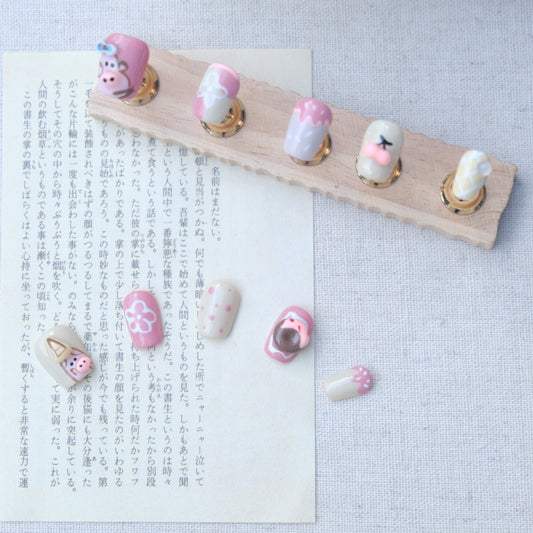 名前はまだない。
頓と見当がつかぬ。何でも薄暗い じめした所でニャーニャー泣いて
憶している。吾輩はここで始めて人間というものを見た。しかもあとで聞
という人間中で一番獰悪な種族であったそうだ。この書生というのは時々
煮て食うという話である。しかし という考もなかったから別段
かった。ただ彼の掌に載せら 持ち上げられた時何だかフワフ
があったばかりである。掌の上で少し落ち付いて書生の顔を見たのがいわゆる
ものの見始であろう。この時妙なものだと思った感じが今でも残っている。第
一毛をもって装飾されべきはずの顔がつるつるしてまるで薬缶だ。その後猫にも大分逢った
がこんな片輪には一度も出会わした事がない。のみなら が余りに突起している。
そうしてその穴の中から時々ぷうぷうと煙を吹く。ど て実に弱った。これが
人間の飲む烟草というものである事は漸くこの頃知った。
この書生の掌の裏でしばらくはよい心持に坐っておったが、暫くすると非常な速力で運